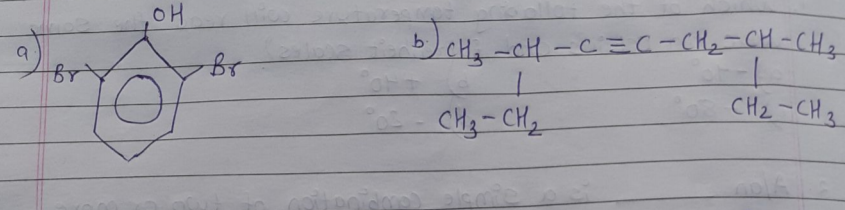 OH
a) Br Br
b) CH₃ - CH - C ≡ C - CH₂ - CH - CH₃
| |
CH₃ - CH₂ CH₂ - CH₃